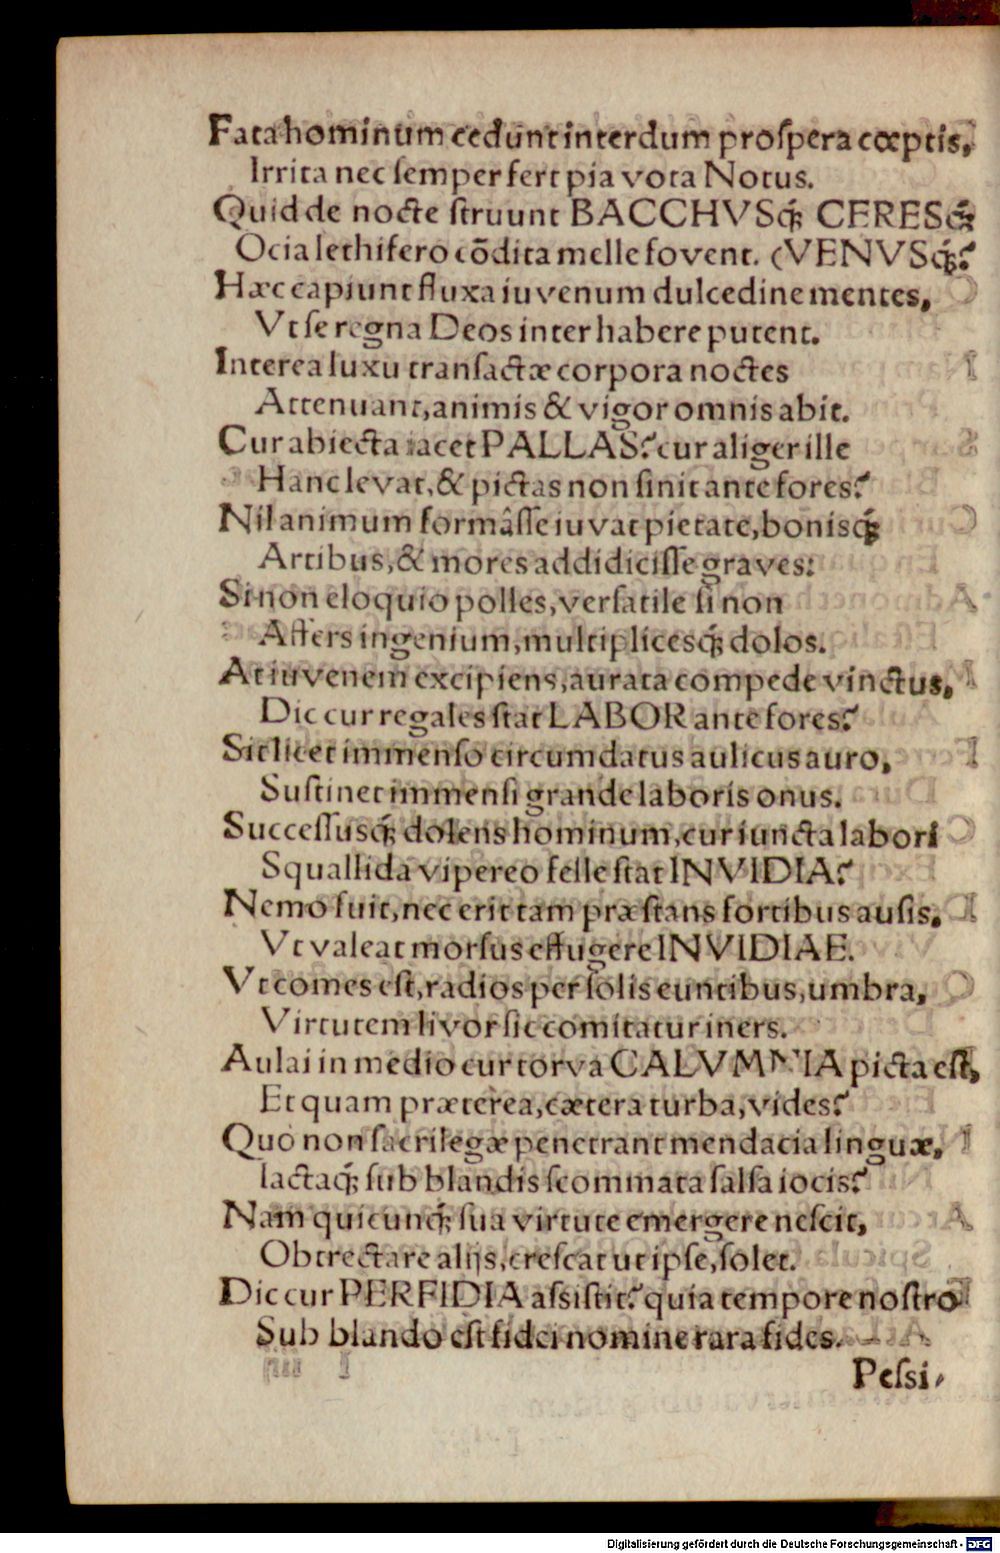 Fata hominum cedunt interdum prospera cœptis,
Irrita nec semper fert pia vota Notus.
Quid de nocte struunt BACCHVSq́; CERESq́;
Ocia lethifero cõdita melle fovent. (VENVSq́;?
Hæc capiunt fluxa iuvenum dulcedine mentes,
Vt se regna Deos inter habere putent.
Interea luxu transactæ corpora noctes
Attenuant, animis & vigor omnis abit.
Cur abiecta iacet PALLAS? cur aliger ille
Hanc levat, & pictas non sinit ante fores?
Nil animum formâsse iuvat pietate, bonisq́;
Artibus, & mores addidicisse graves:
Si non eloquio polles, versatile si non
Affers ingenium, multiplicesq́; dolos.
At iuvenem excipiens, aurata compede vinctus,
Dic cur regales stat LABOR ante fores?
Sit licet immenso circumdatus aulicus auro,
Sustinet immensi grande laboris onus.
Successusq́; dolens hominum, cur iuncta labori
Squallida vipereo felle stat INVIDIA?
Nemo fuit, nec erit tam præstans fortibus ausis,
Vt valeat morsus effugere INVIDIAE.
Vt comes est, radios per solis euntibus, umbra,
Virtutem livor sic comitatur iners.
Aulai in medio cur torva CALVMNIA picta est,
Et quam præterea, cætera turba, vides?
Quò non sacrilegæ penetrant mendacia linguæ,
Iactaq́; sub blandis scommata salsa iocis?
Nam quicunq́; sua virtute emergere nescit,
Obtrectare alijs, crescat ut ipse, solet.
Dic cur PERFIDIA assistit? quia tempore nostro
Sub blando est fidei nomine rara fides.
Pessi-
Digitalisierung gefördert durch die Deutsche Forschungsgemeinschaft - DFG